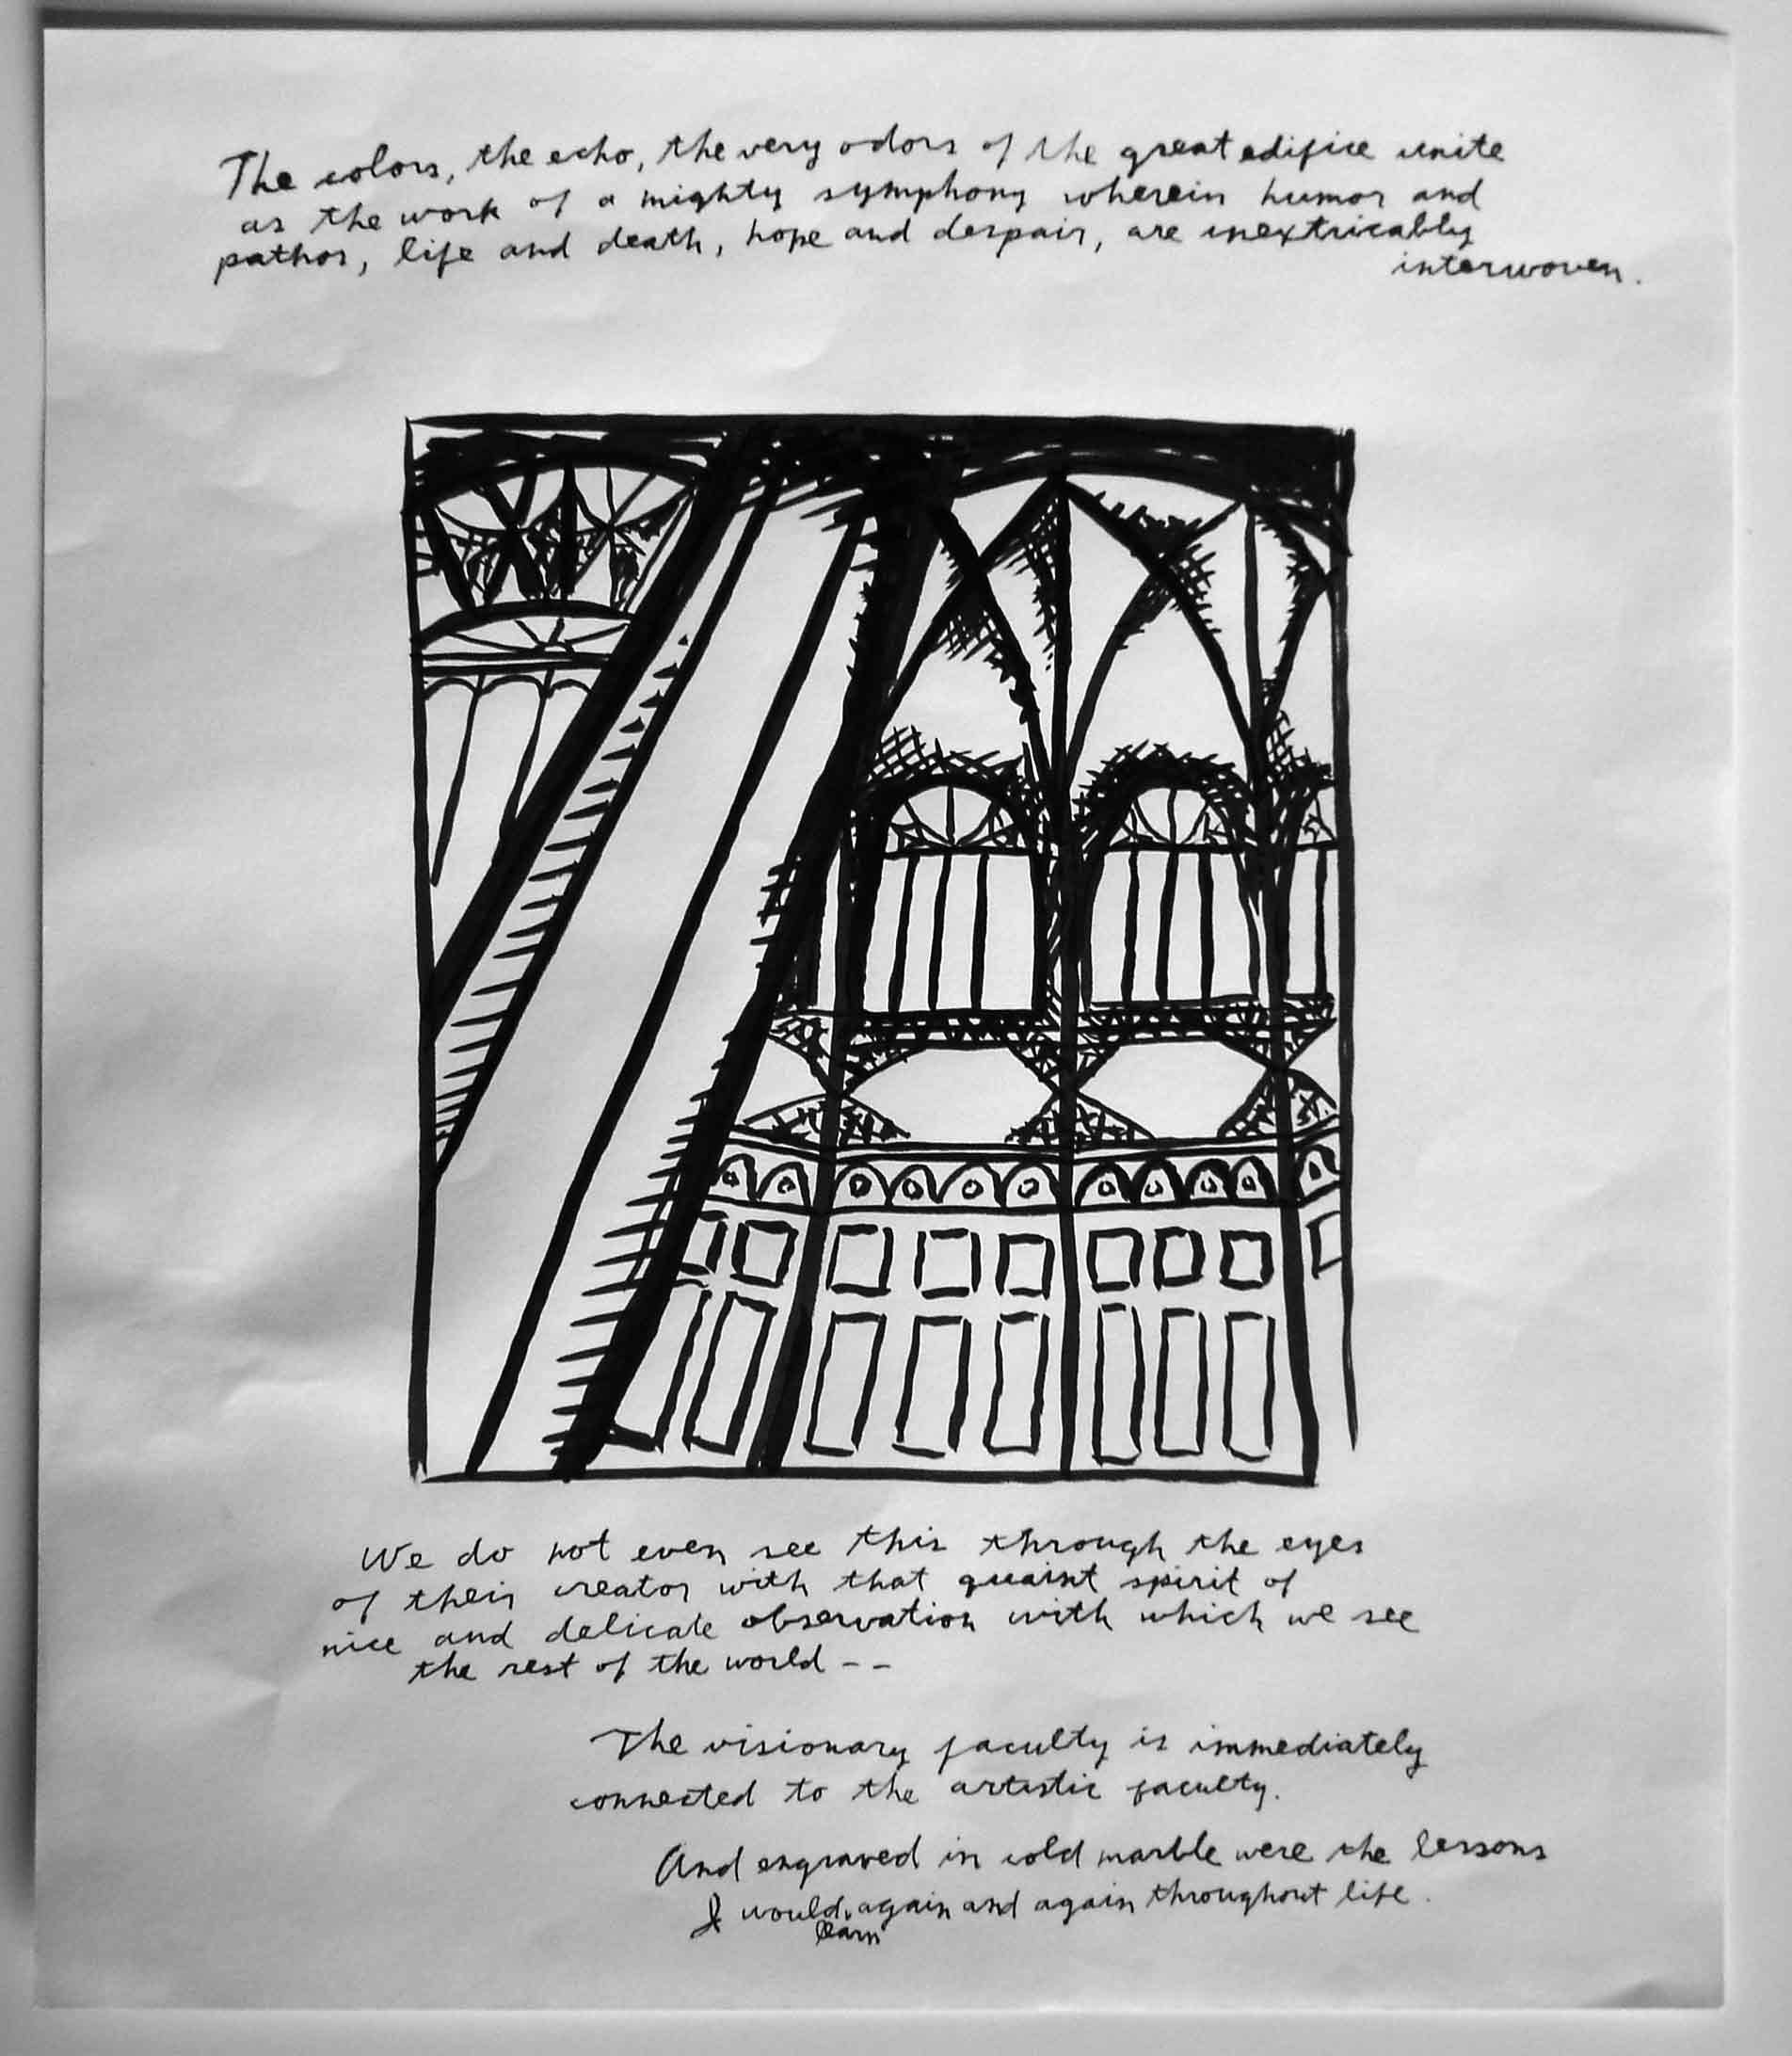 The colors, the echo, the very odors of the great edifice unite
as the work of a mighty symphony wherein humor and
pathos, life and death, hope and despair, are inextricably
interwoven.
We do not even see this through the eyes
of their creator with that quaint spirit of
nice and delicate observation with which we see
the rest of the world --
The visionary faculty is immediately
connected to the artistic faculty.
And engraved in cold marble were the lessons
I would again and again throughout life.
learn